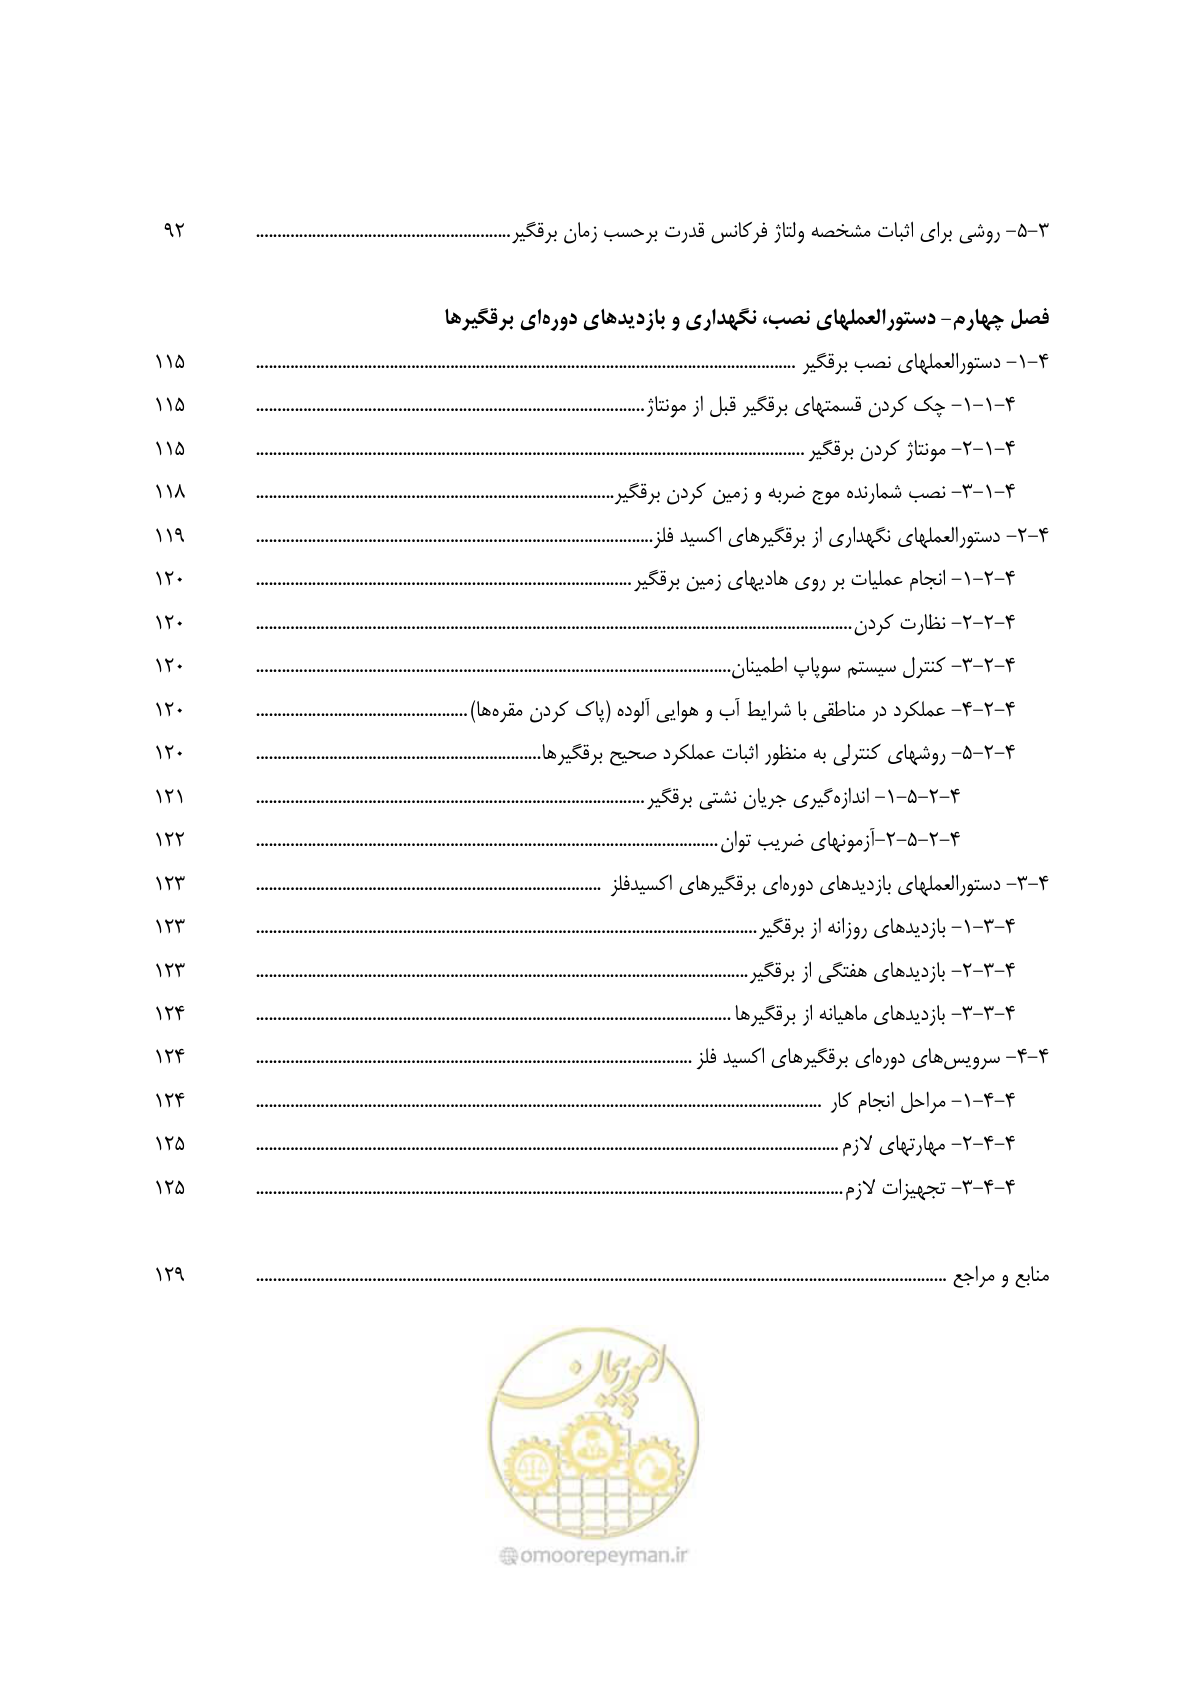 ۳-۵- روشی برای اثبات مشخصه ولتاژ فرکانس قدرت برحسب زمان برقگیر ........ ۹۲
فصل چهارم- دستورالعملهای نصب، نگهداری و بازدیدهای دوره‌ای برقگیرها
۴-۱- دستورالعملهای نصب برقگیر ........ ۱۱۵
۴-۱-۱- چک کردن قسمتهای برقگیر قبل از مونتاژ ........ ۱۱۵
۴-۱-۲- مونتاژ کردن برقگیر ........ ۱۱۵
۴-۱-۳- نصب شمارنده موج ضربه و زمین کردن برقگیر ........ ۱۱۸
۴-۲- دستورالعملهای نگهداری از برقگیرهای اکسید فلز ........ ۱۱۹
۴-۲-۱- انجام عملیات بر روی هادیهای زمین برقگیر ........ ۱۲۰
۴-۲-۲- نظارت کردن ........ ۱۲۰
۴-۲-۳- کنترل سیستم سوپاپ اطمینان ........ ۱۲۰
۴-۲-۴- عملکرد در مناطقی با شرایط آب و هوایی آلوده (پاک کردن مقره‌ها) ........ ۱۲۰
۴-۲-۵- روشهای کنترلی به منظور اثبات عملکرد صحیح برقگیرها ........ ۱۲۰
۴-۲-۵-۱- اندازه‌گیری جریان نشتی برقگیر ........ ۱۲۱
۴-۲-۵-۲-آزمونهای ضریب توان ........ ۱۲۲
۴-۳- دستورالعملهای بازدیدهای دوره‌ای برقگیرهای اکسیدفلز ........ ۱۲۳
۴-۳-۱- بازدیدهای روزانه از برقگیر ........ ۱۲۳
۴-۳-۲- بازدیدهای هفتگی از برقگیر ........ ۱۲۳
۴-۳-۳- بازدیدهای ماهیانه از برقگیرها ........ ۱۲۴
۴-۴- سرویس‌های دوره‌ای برقگیرهای اکسید فلز ........ ۱۲۴
۴-۴-۱- مراحل انجام کار ........ ۱۲۴
۴-۴-۲- مهارتهای لازم ........ ۱۲۵
۴-۴-۳- تجهیزات لازم ........ ۱۲۵
منابع و مراجع ........ ۱۲۹
امور پیمان
@omoorepeyman.ir